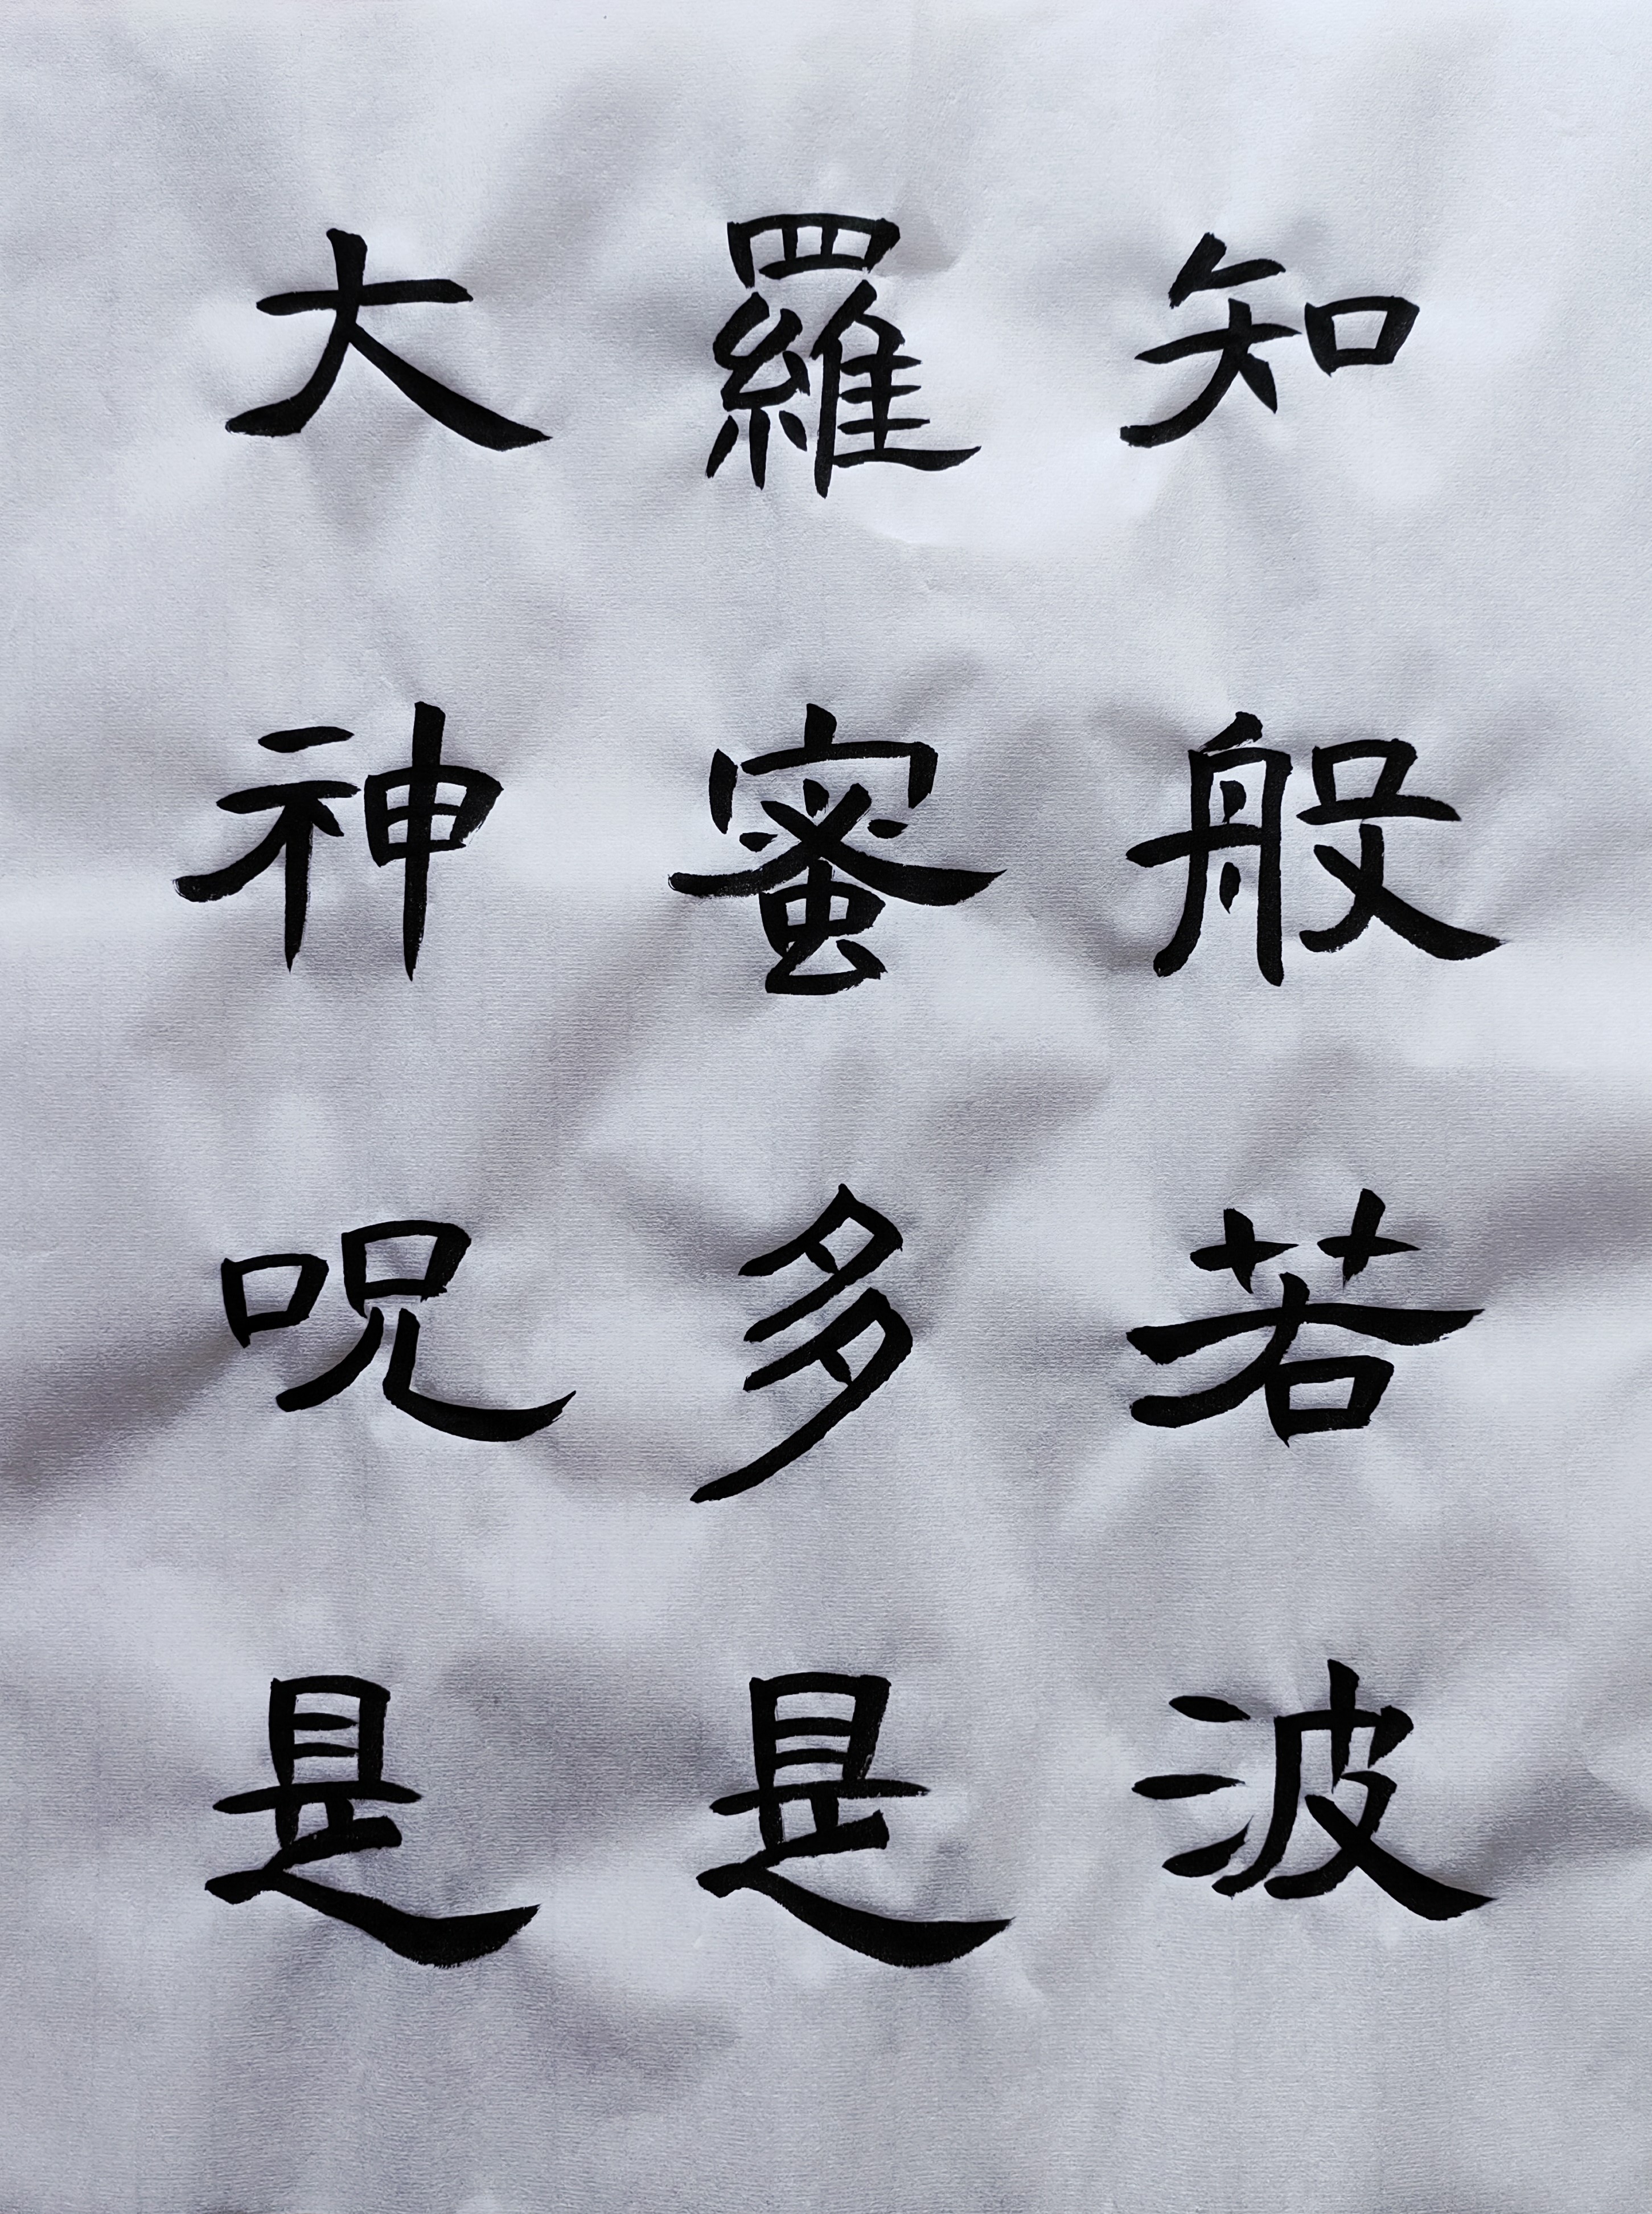 知般若波
羅蜜多是
大神呪是